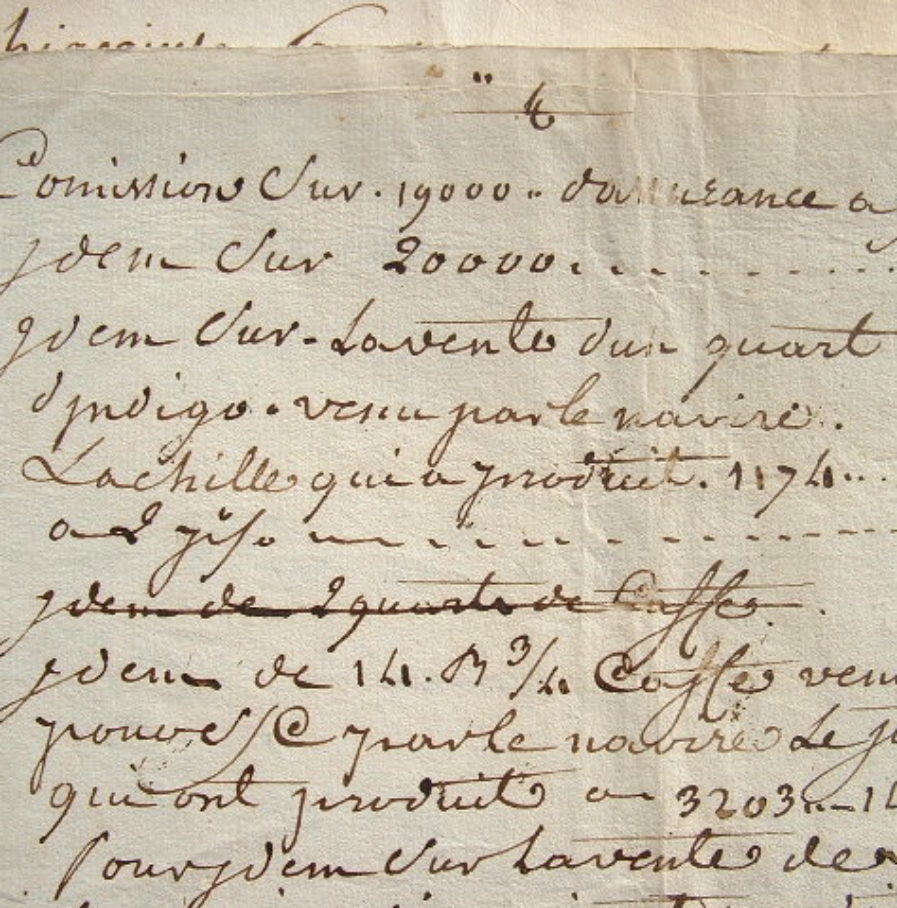 Comission Sur. 19000.. dassurance a
jdem Sur 20000
jdem Sur. Lavente dun quart
djndigo. venu par le navire.
Lachille qui a produit. 1174..
a 2 p%
jdem de 2 quarts de Caffes
jdem de 14. B 3/4 Caffes venu
pour S/C par le navire Le
qui ont produit a 3203..-14
Pour jdem Sur Lavente de